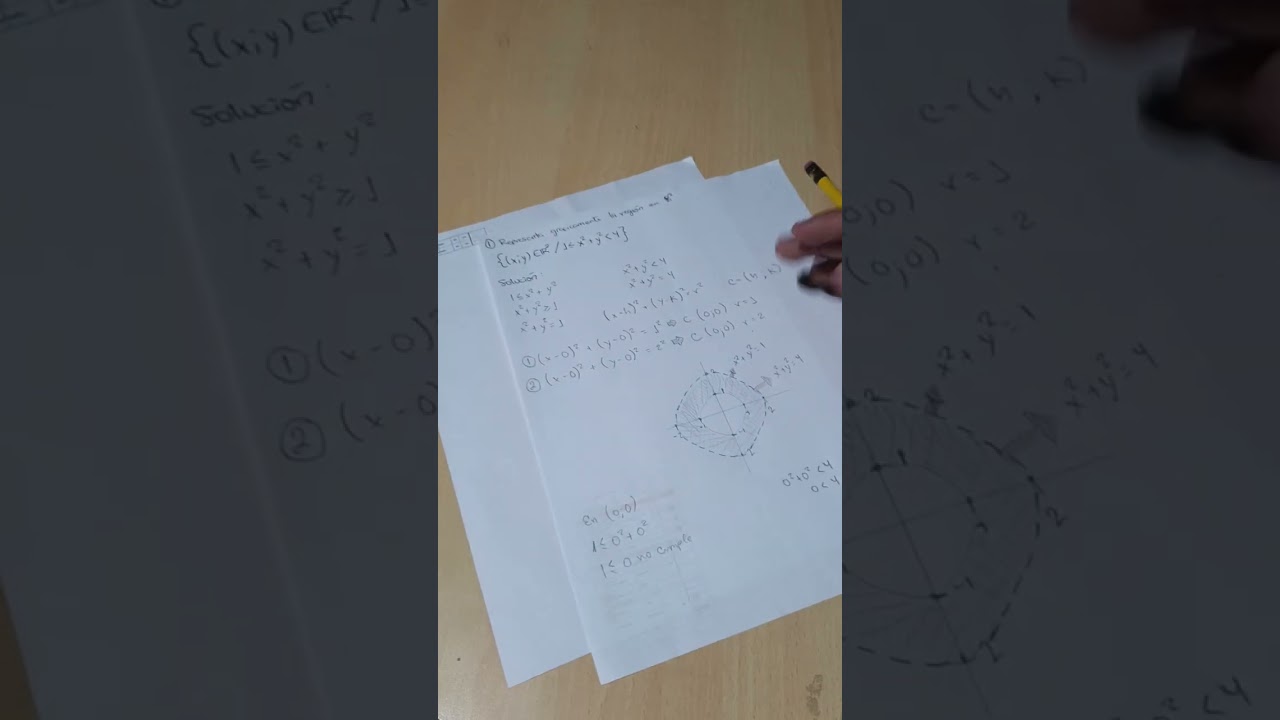 ① Represente graficamente la región en R²
{(x;y) ∈ R² / 1 ≤ x² + y² < 4}
Solución:
1 ≤ x² + y²
x² + y² ≥ 1
x² + y² = 1
x² + y² < 4
x² + y² = 4
(x-h)² + (y-k)² = r²
C = (h, k)
① (x-0)² + (y-0)² = 1² ⇒ C (0,0) r = 1
② (x-0)² + (y-0)² = 2² ⇒ C (0,0) r = 2
x² + y² = 1
x² + y² = 4
2
1
1
2
-1
0² + 0² < 4
0 < 4
En (0,0)
1 ≤ 0² + 0²
1 ≤ 0 no cumple